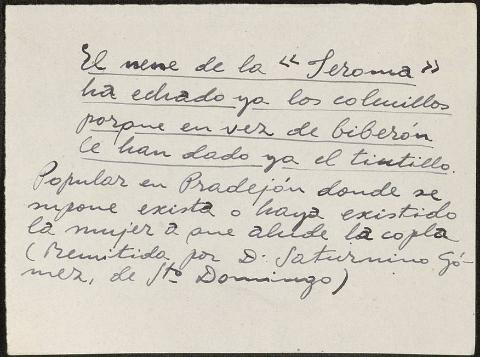 El nene de la «Jeroma»
ha echado ya los colmillos
porque en vez de biberón
le han dado ya el tintillo.
Popular en Pradejón donde se
supone exista o haya existido
la mujer a que alude la copla
(Remitida por D. Saturnino Gó-
mez, de Sto Domingo)